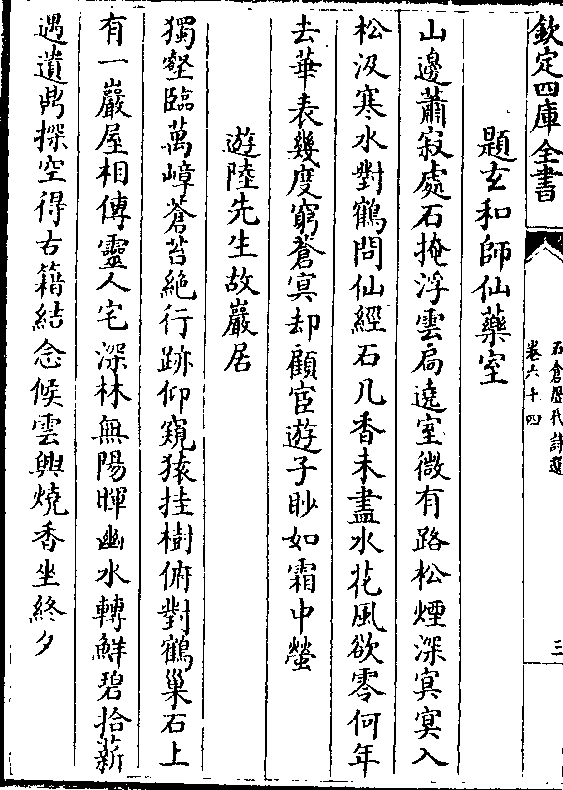 欽定四庫全書
石倉歷代詩選
卷六十四
三
題玄和師仙藥室
山邊蕭寂處石掩浮雲扃遶室微有路松煙深冥冥入
松汲寒水對鶴問仙經石几香未盡水花風欲零何年
去華表幾度窮蒼冥却顧宦遊子眇如霜中螢
遊陸先生故巖居
獨壑臨萬嶂蒼苔絶行跡仰窺猿挂樹俯對鶴巢石上
有一巖屋相傳靈人宅深林無陽暉幽水轉鮮碧拾薪
遇遺鼎探空得古籍結念候雲興燒香坐終夕